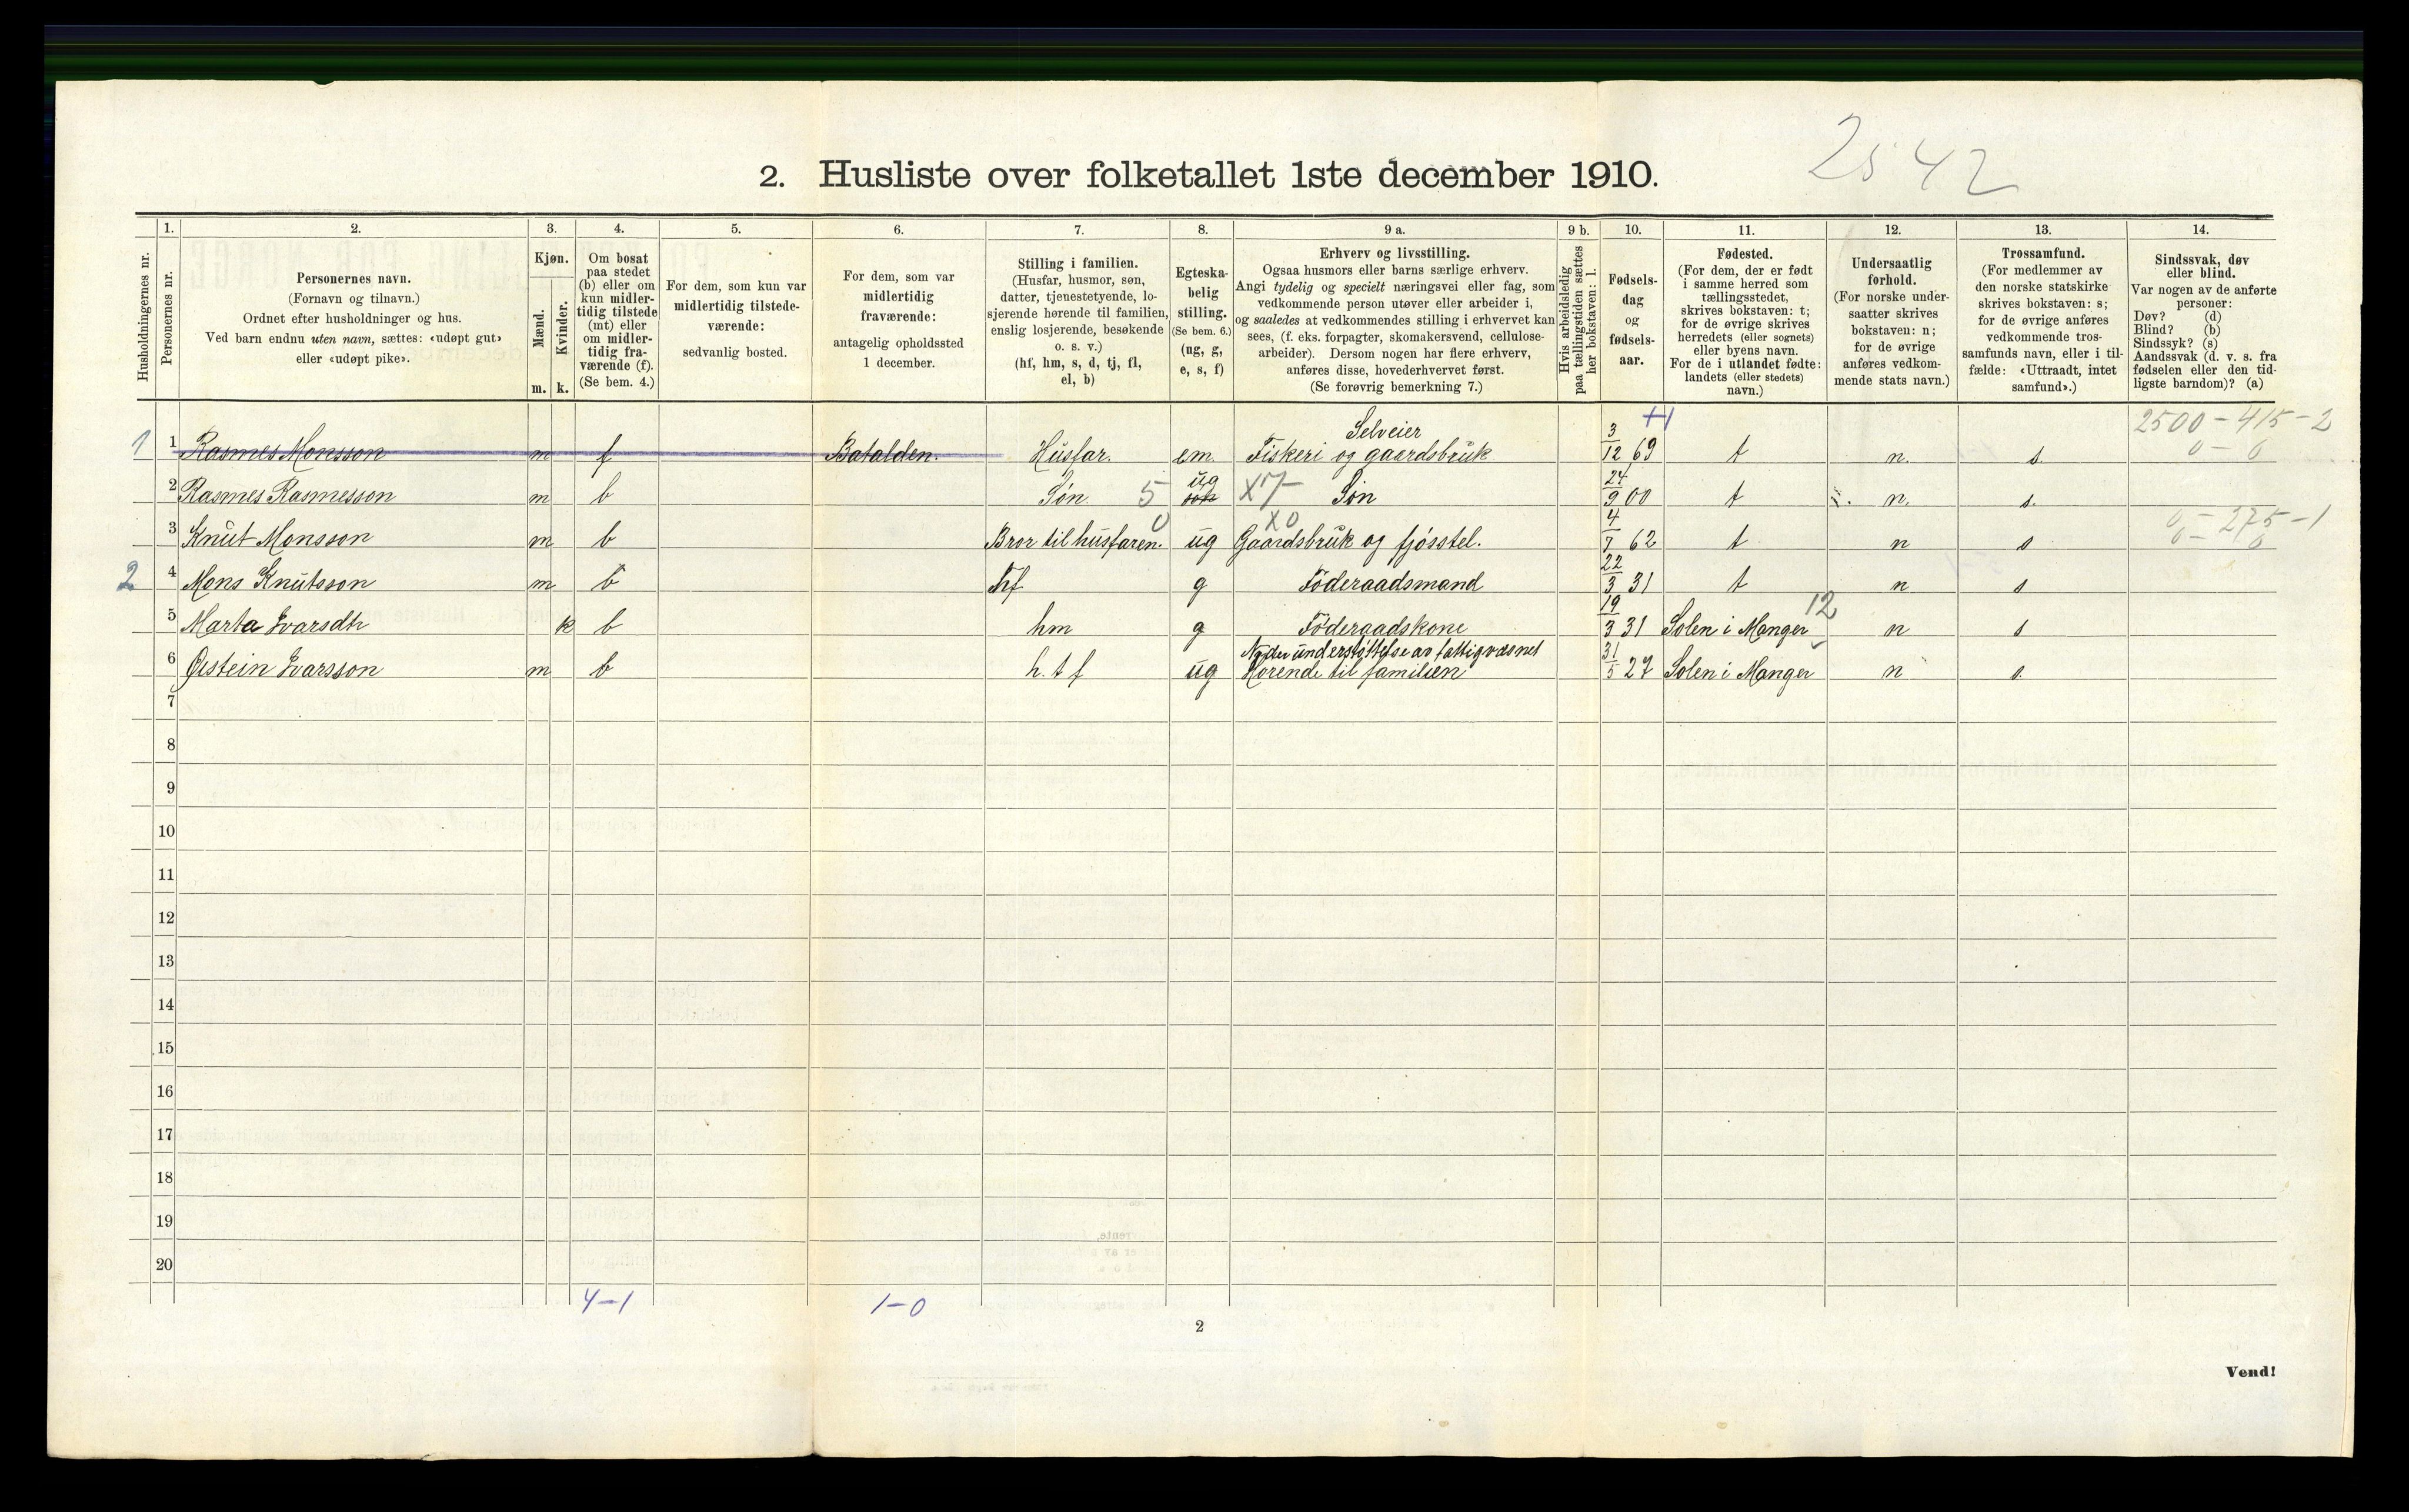 2542
2. Husliste over folketallet 1ste december 1910.
Husholdningernes nr.
1. Personernes nr.
2. Personernes navn.
(Fornavn og tilnavn.)
Ordnet efter husholdninger og hus.
Ved barn endnu uten navn, sættes: «udøpt gut»
eller «udøpt pike».
3. Kjøn.
Mænd. m.
Kvinder. k.
4. Om bosat
paa stedet
(b) eller om
kun midler-
tidig tilstede
(mt) eller
om midler-
tidig fra-
værende (f).
(Se bem. 4.)
5. For dem, som kun var
midlertidig tilstede-
værende:
sedvanlig bosted.
6. For dem, som var
midlertidig
fraværende:
antagelig opholdssted
1 december.
7. Stilling i familien.
(Husfar, husmor, søn,
datter, tjenestetyende, lo-
sjerende hørende til familien,
enslig losjerende, besøkende
o. s. v.)
(hf, hm, s, d, tj, fl,
el, b)
8. Egteska-
belig
stilling.
(Se bem. 6.)
(ug, g,
e, s, f)
9 a. Erhverv og livsstilling.
Ogsaa husmors eller barns særlige erhverv.
Angi tydelig og specielt næringsvei eller fag, som
vedkommende person utøver eller arbeider i,
og saaledes at vedkommendes stilling i erhvervet kan
sees, (f. eks. forpagter, skomakersvend, cellulose-
arbeider). Dersom nogen har flere erhverv,
anføres disse, hovederhvervet først.
(Se forøvrig bemerkning 7.)
9 b. Hvis arbeidsledig
paa tællingstiden sættes
her bokstaven: l.
10. Fødsels-
dag
og
fødsels-
aar.
11. Fødested.
(For dem, der er født
i samme herred som
tællingsstedet,
skrives bokstaven: t;
for de øvrige skrives
herredets (eller sognets)
eller byens navn.
For de i utlandet fødte:
landets (eller stedets)
navn.)
12. Undersaatlig
forhold.
(For norske under-
saatter skrives
bokstaven: n;
for de øvrige
anføres vedkom-
mende stats navn.)
13. Trossamfund.
(For medlemmer av
den norske statskirke
skrives bokstaven: s;
for de øvrige anføres
vedkommende tros-
samfunds navn, eller i til-
fælde: «Uttraadt, intet
samfund».)
14. Sindssvak, døv
eller blind.
Var nogen av de anførte
personer:
Døv? (d)
Blind? (b)
Sindssyk? (s)
Aandssvak (d. v. s. fra
fødselen eller den tid-
ligste barndom)? (a)
Selveier +1 2500-415-2
1 1 Rasmes Monsson m f Batalden. Husfar. em. Fiskeri og gaardsbruk 3/12 69 t n. s. 0-0
2 Rasmes Rasmesson m b Søn. 5 ug søn X7- Søn 24/9 00 t n. s.
0 X0 0-275-1
3 Knut Monsson m b Bror til husfaren. ug Gaardsbruk og fjøsstel. 4/7 62 t n s 0-0
2 4 Mons Knutsson m b hf g Föderaadsmand 22/3 31 t n s
5 Marta Ivarsdtr k b hm g Föderaadskone 19/3 31 Solen i Manger 12 n s
Nyder understøttelse av fattigvæsnet
6 Øistein Ivarsson m b h. t f ug Hørende til familien 31/5 27 Solen i Manger n s.
7
8
9
10
11
12
13
14
15
16
17
18
19
20
4-1 1-0
2
Vend!